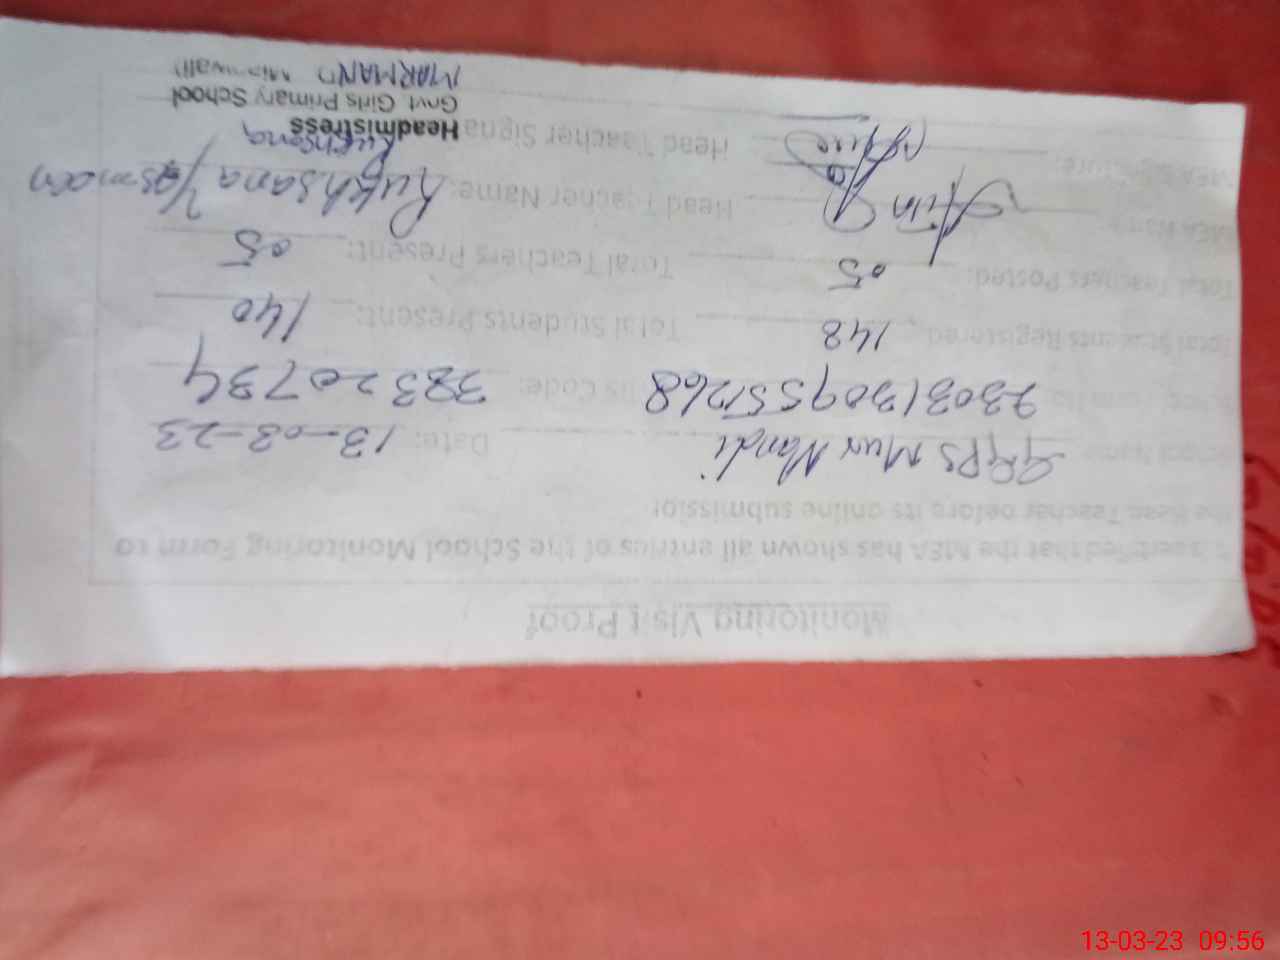 Monitoring Visit Proof
It is certified that the MEA has shown all entries of the School Monitoring Form to
the Head Teacher before its online submission
School Name: GGPS Mur Mandi Date: 13-03-23
Code: 38320734
Total Students Registered: 148 Total Students Present: 140
Total Teachers Posted: 05 Total Teachers Present: 05
MEA Name: Head Teacher Name: Rukhsana Yasmeen
MEA Signature: Head Teacher Signa Rukhsana
Headmistress
Govt Girls Primary School
MARMANDI Mianwali
13-03-23 09:56